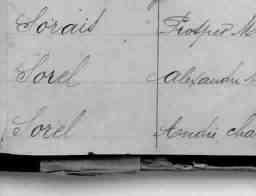 Sorais Prosper M
Sorel Alexandre
Sorel André Cha